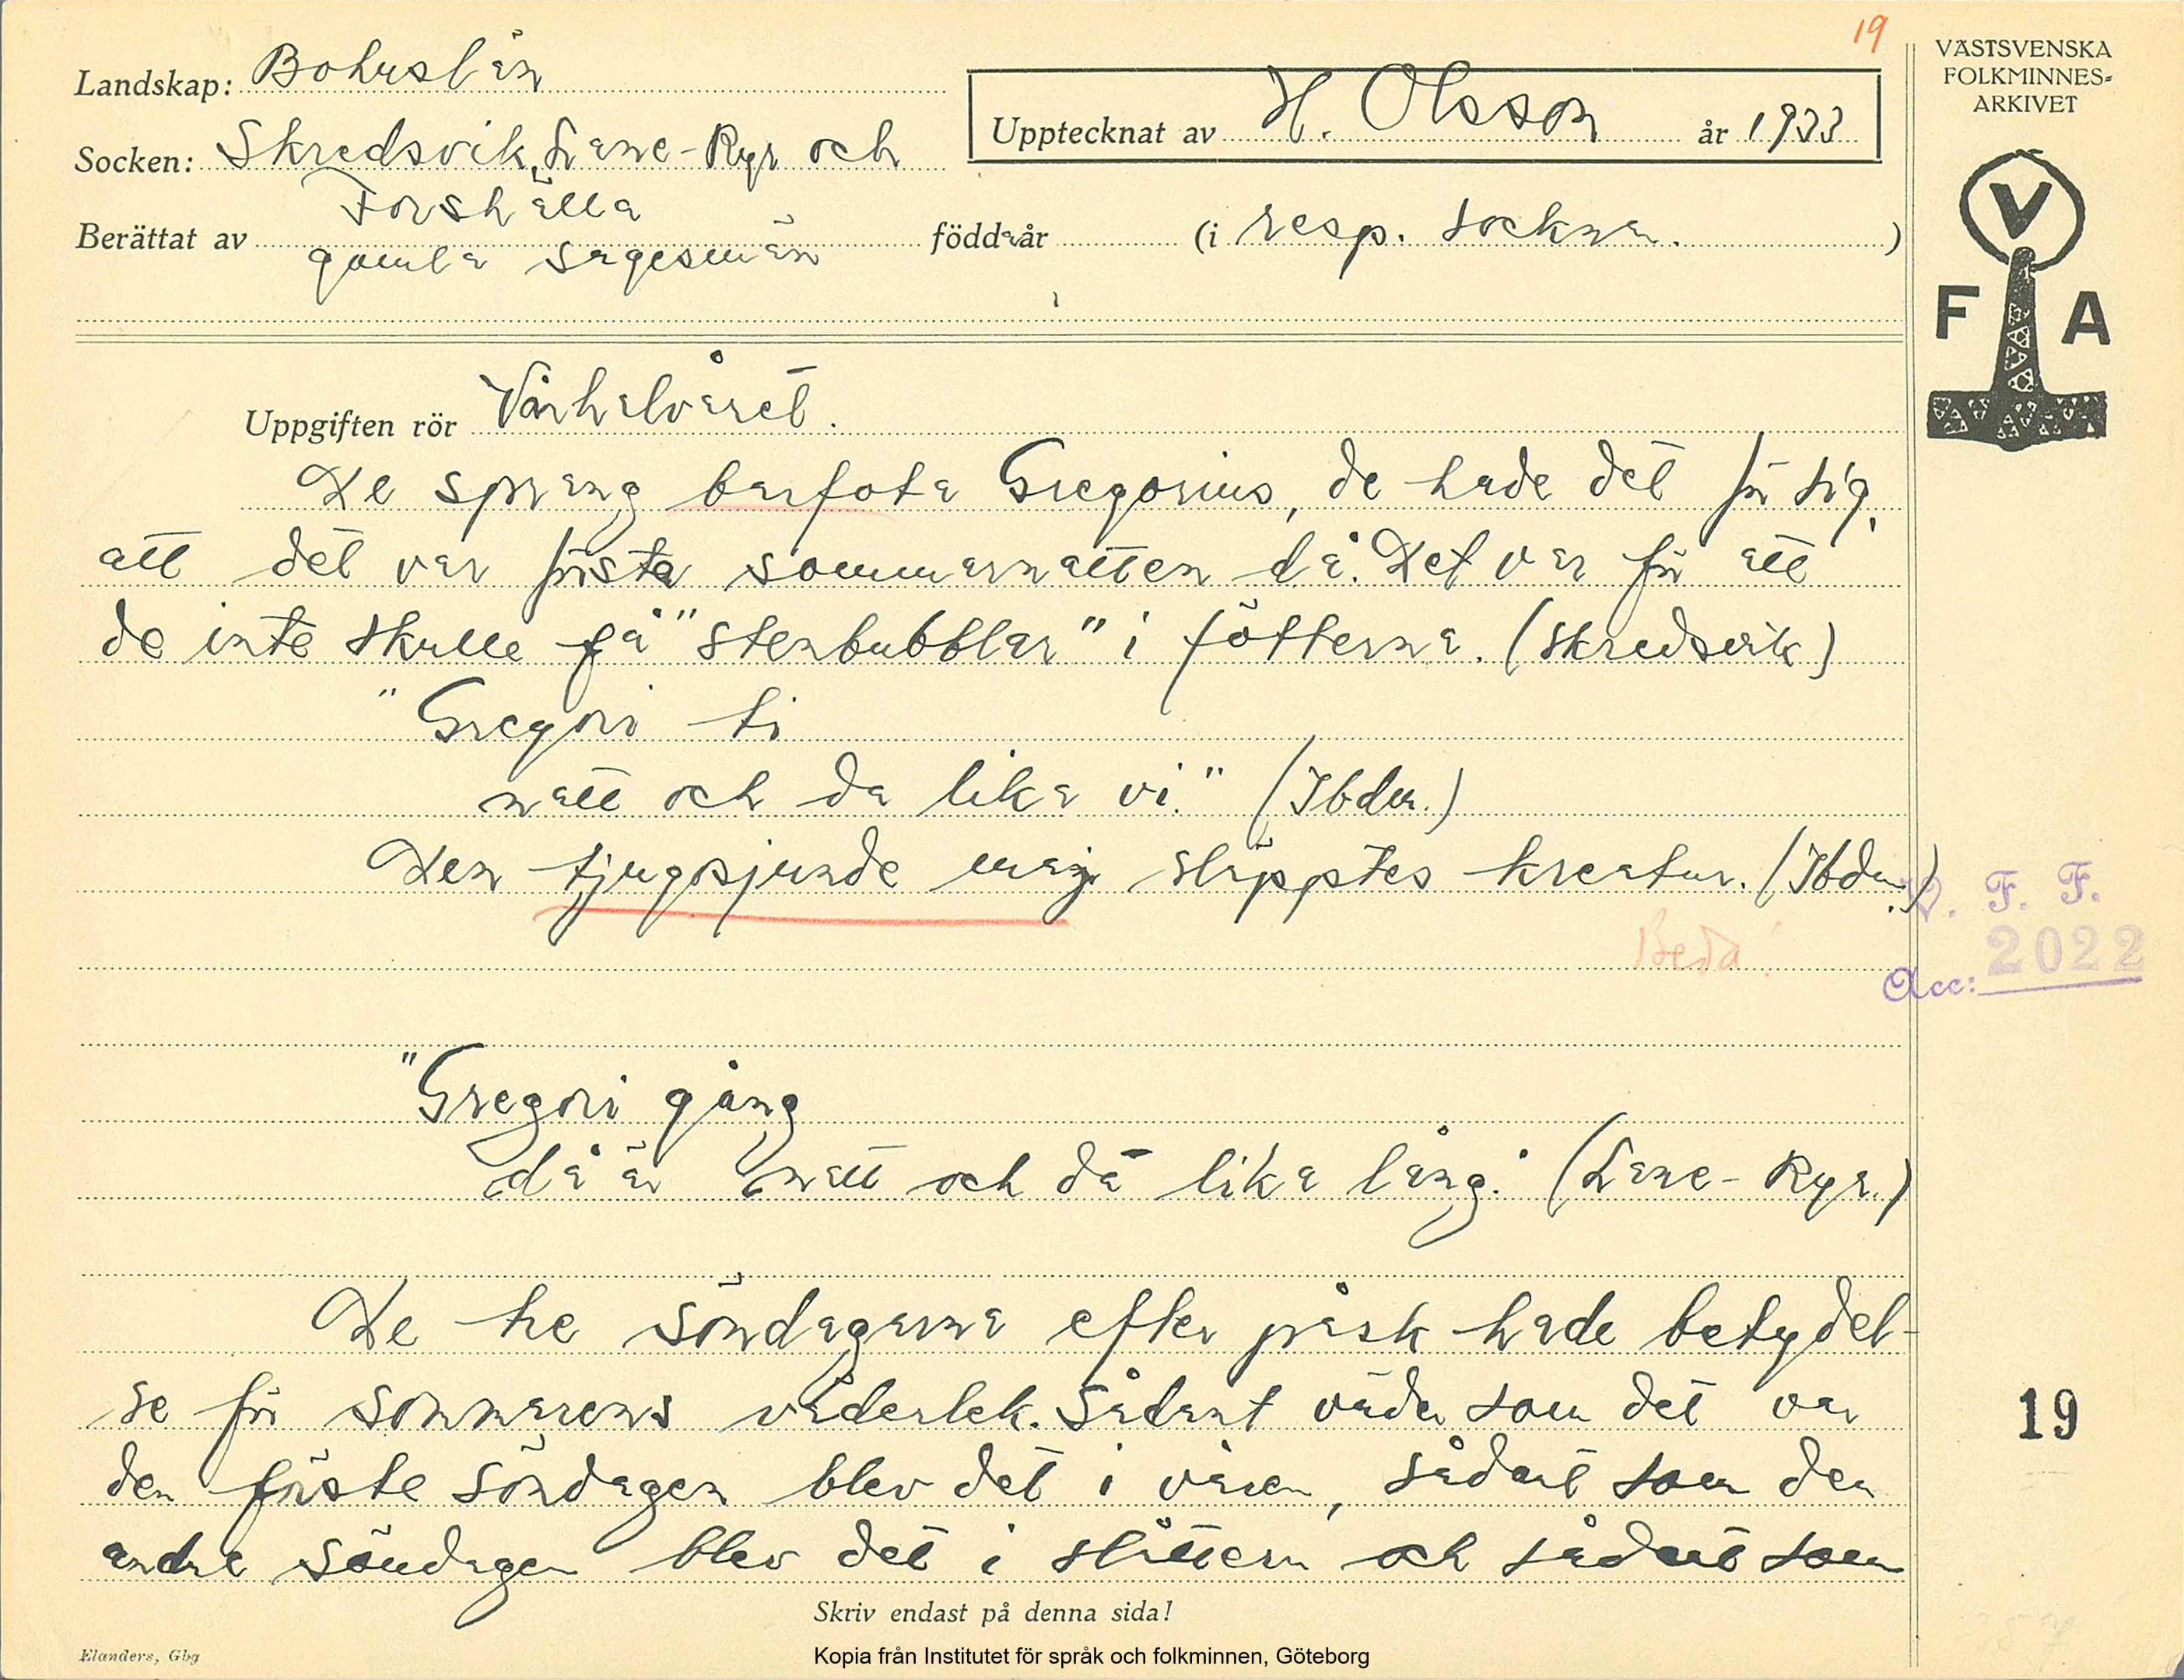 19
VÄSTSVENSKA
FOLKMINNES-
ARKIVET
Landskap: Bohuslän
Upptecknat av H. Olsson år 1933
Socken: Skredsvik, Lane-Ryr och
Forshälla
Berättat av gamla sagesmän födda år (i resp. socknar.)
V
F A
Uppgiften rör Vårhalvåret.
De sprang barfota Gregorius, de hade det för sig,
att det var första sommarnatten då. Det var för att
de inte skulle få "stenbubblar" i fötterna. (Skredsvik)
"Gregori ti
natt och da lika vi." (Ibdm.)
Den tjugosjunde maj släpptes kreatur. (Ibdm.)
V. F. F.
Beda!
Acc: 2022
"Gregori gång
då är natt och da lika lång." (Lane-Ryr.)
De tre söndagarna efter påsk hade betydel-
se för sommarens väderlek. Sådant väder som det var
den förste söndagen blev det i våren, sådant som den
andre söndagen blev det i slåttern och sådant som
19
Skriv endast på denna sida!
Elanders, Gbg
Kopia från Institutet för språk och folkminnen, Göteborg